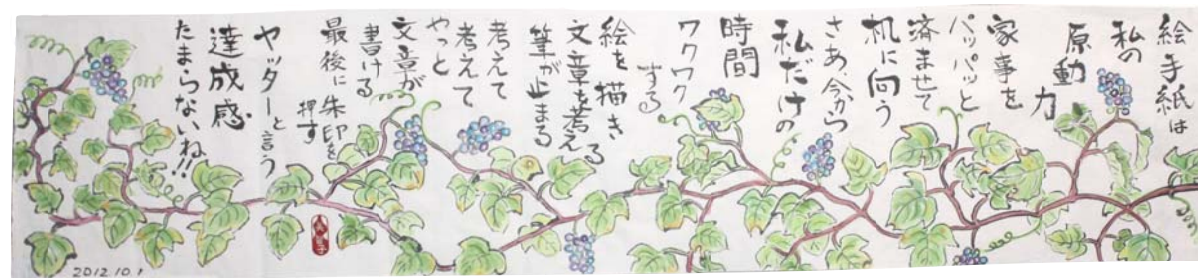 絵手紙は
私の
原動力
家事を
パッパッと
済ませて
机に向う
さあ、今から
私だけの
時間
ワクワク
する
絵を描き
文章を考える
筆が止まる
考えて
考えて
やっと
文章が
書ける
最後に朱印を
押す
ヤッターと言う
達成感
たまらないね!!
2012.10.1